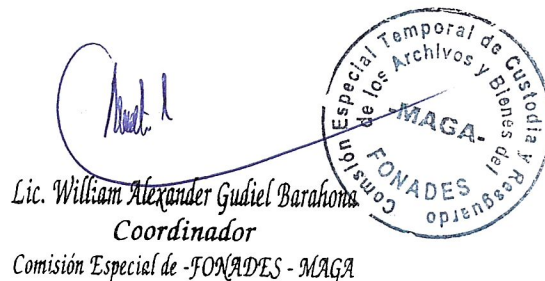 Comsión Especial Temporal de Custodia y Resguardo
de los Archivos y Bienes del
-MAGA-
FONADES
Lic. William Alexander Gudiel Barahona
Coordinador
Comisión Especial de -FONADES - MAGA